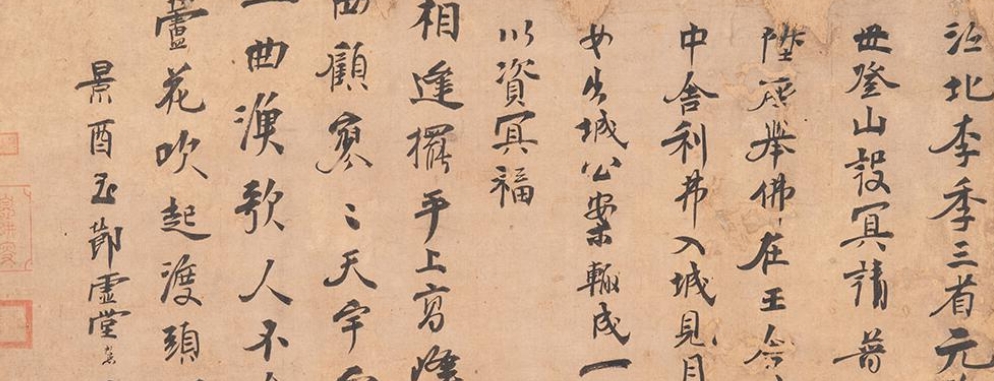 江北李季三省元
登山設冥請普
陞座舉佛在王舍
中舍利弗入城見月
女出城公案輙成一
以資冥福
相逢擺手上高峰
四顧寥〻天宇
一曲漁歌人不
蘆花吹起渡頭
景酉玉節虛堂